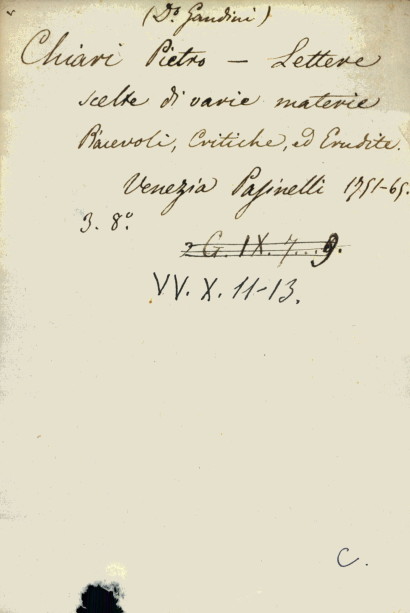 (D.º Gandini)
Chiari Pietro — Lettere
scelte di varie materie
Piacevoli, Critiche, ed Erudite.
Venezia Pasinelli 1751-65.
3. 8.º
G. IX. 7...9.
VV. X. 11-13.
C.